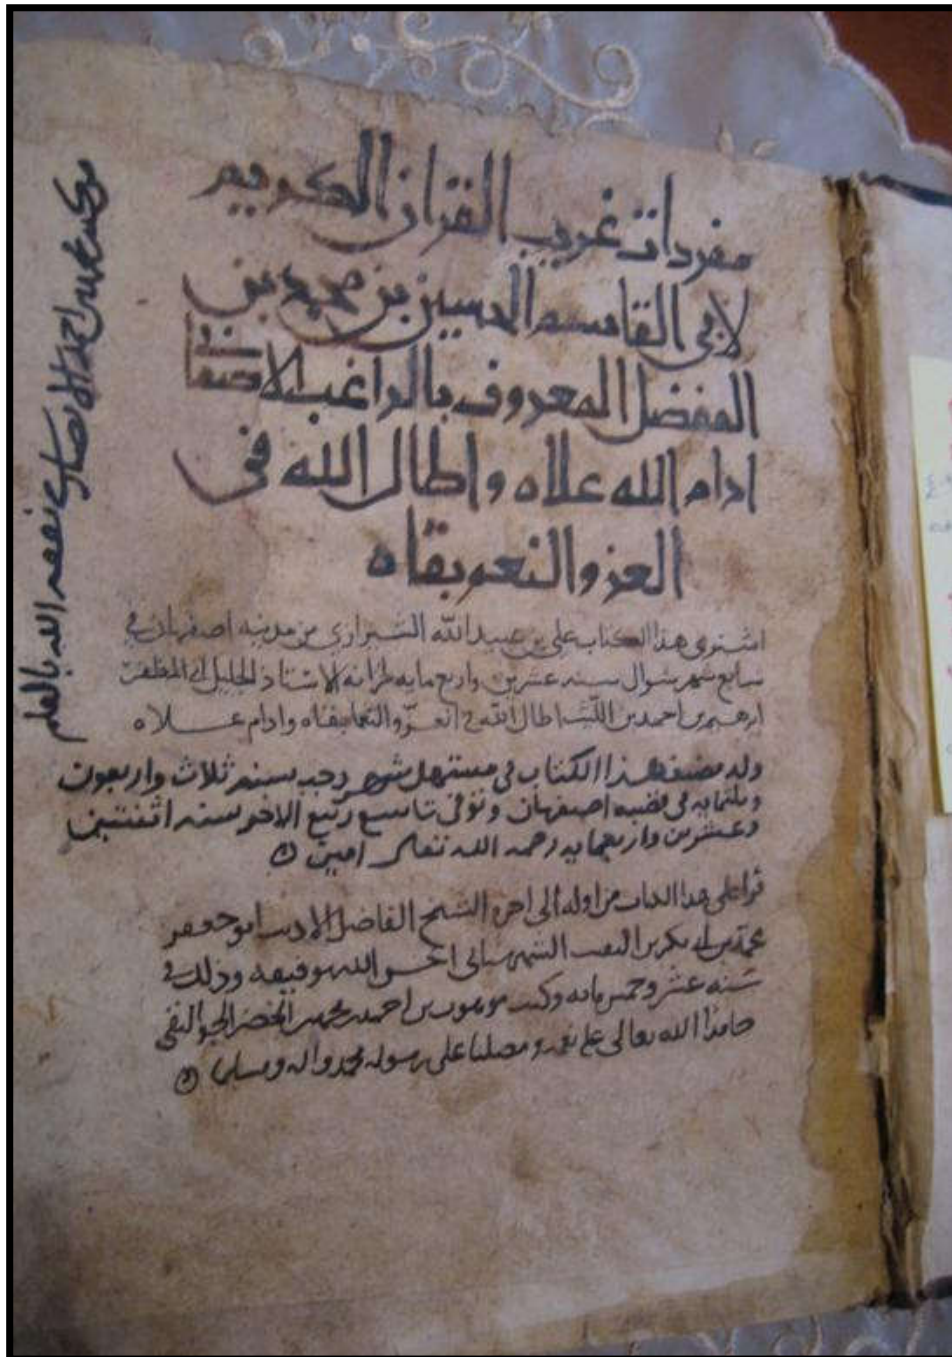 مفردات غريب القران الكريم
لابي القاسم الحسين بن محمد بن
المفضل المعروف بالراغب الاصفهاني
ادام الله علاه واطال الله في
العز والنعم بقاه
اشترى هذا الكتاب علي بن عبيد الله الشيرازي من مدينه اصفهان في
سابع شهر شوال سنه عشرين واربع مايه لخزانه الاستاذ الجليل ابي المظفر
ابرهيم بن احمد بن الليث اطال الله في العز والنعما بقاه وادام عــلاه
ولد مصنف هذا الكتاب في مستهل شهر رجب سنه ثلاث واربعون
وثلثمايه في قصبه اصفهان وتوفى تاسع ربيع الاخر سنه اثنتين
وعشرين واربعمايه رحمه الله تعالى امين
قرا على هذا الكتاب من اوله الى اخره الشيخ الفاضل الاديب ابو جعفر
محمد بن ابي بكر بن النقيب الشهرستاني احسن الله توفيقه وذلك في
سنه عشر وخمس مائه وكتب موهوب بن احمد بن محمد بن الخضر الجواليقي
حامدا الله تعالى على نعمه ومصليا على رسوله محمد واله ومسلما
محمد احمد الانصاري نفعه الله بالعلم